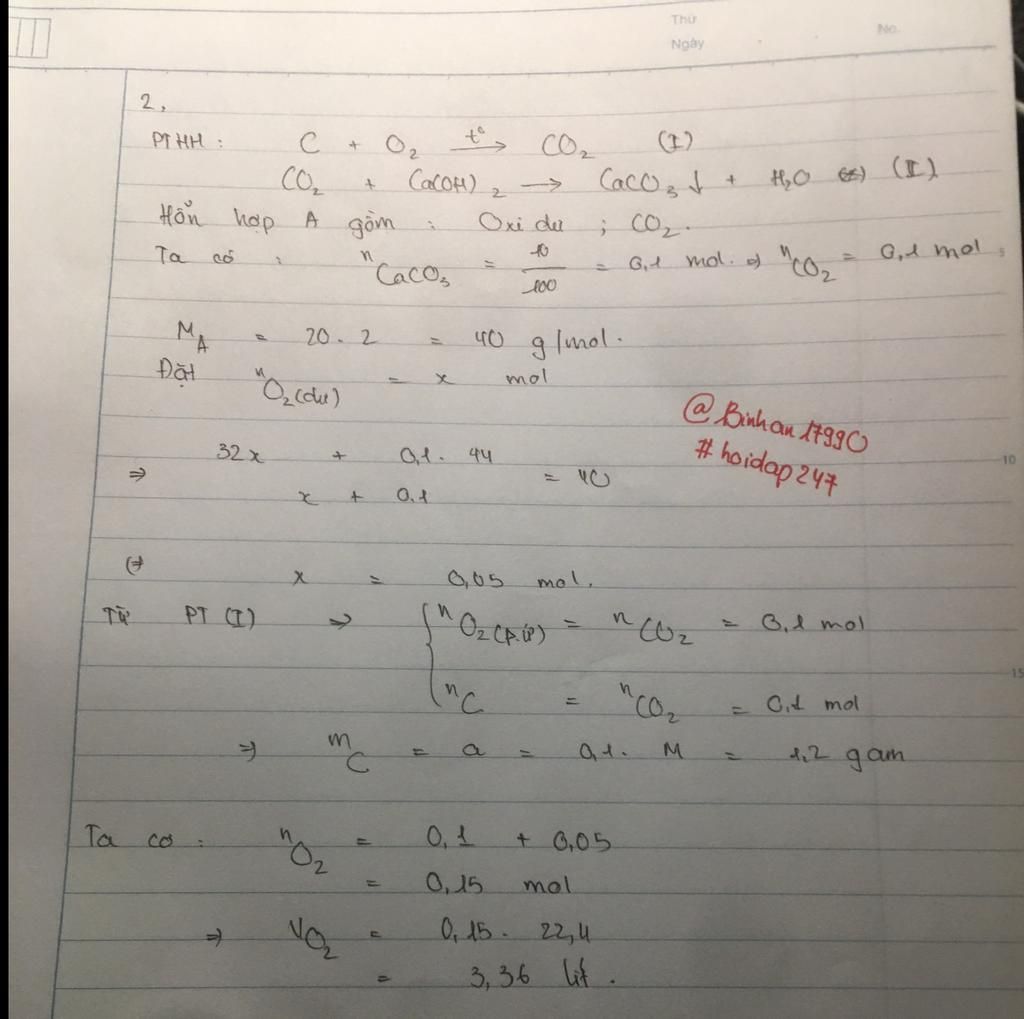 Thứ
No.
Ngày
2,
PTHH : C + O2 t° → CO2 (I)
CO2 + Ca(OH)2 → CaCO3 ↓ + H2O (II)
Hỗn hợp A gồm : Oxi dư ; CO2.
Ta có : nCaCO3 = 10/100 = 0,1 mol. => nCO2 = 0,1 mol.
MA = 20. 2 = 40 g/mol.
Đặt nO2(dư) = x mol
@Binhan1799O
#hoidap247
=> (32x + 0,1. 44)/(x + 0,1) = 40
10
(=> x = 0,05 mol.
Từ PT (I) => { nO2(p.ứ) = nCO2 = 0,1 mol
nC = nCO2 = 0,1 mol
15
=> mC = a = 0,1. M = 1,2 gam
Ta có : nO2 = 0,1 + 0,05
= 0,15 mol
=> VO2 = 0,15. 22,4
= 3,36 lít.